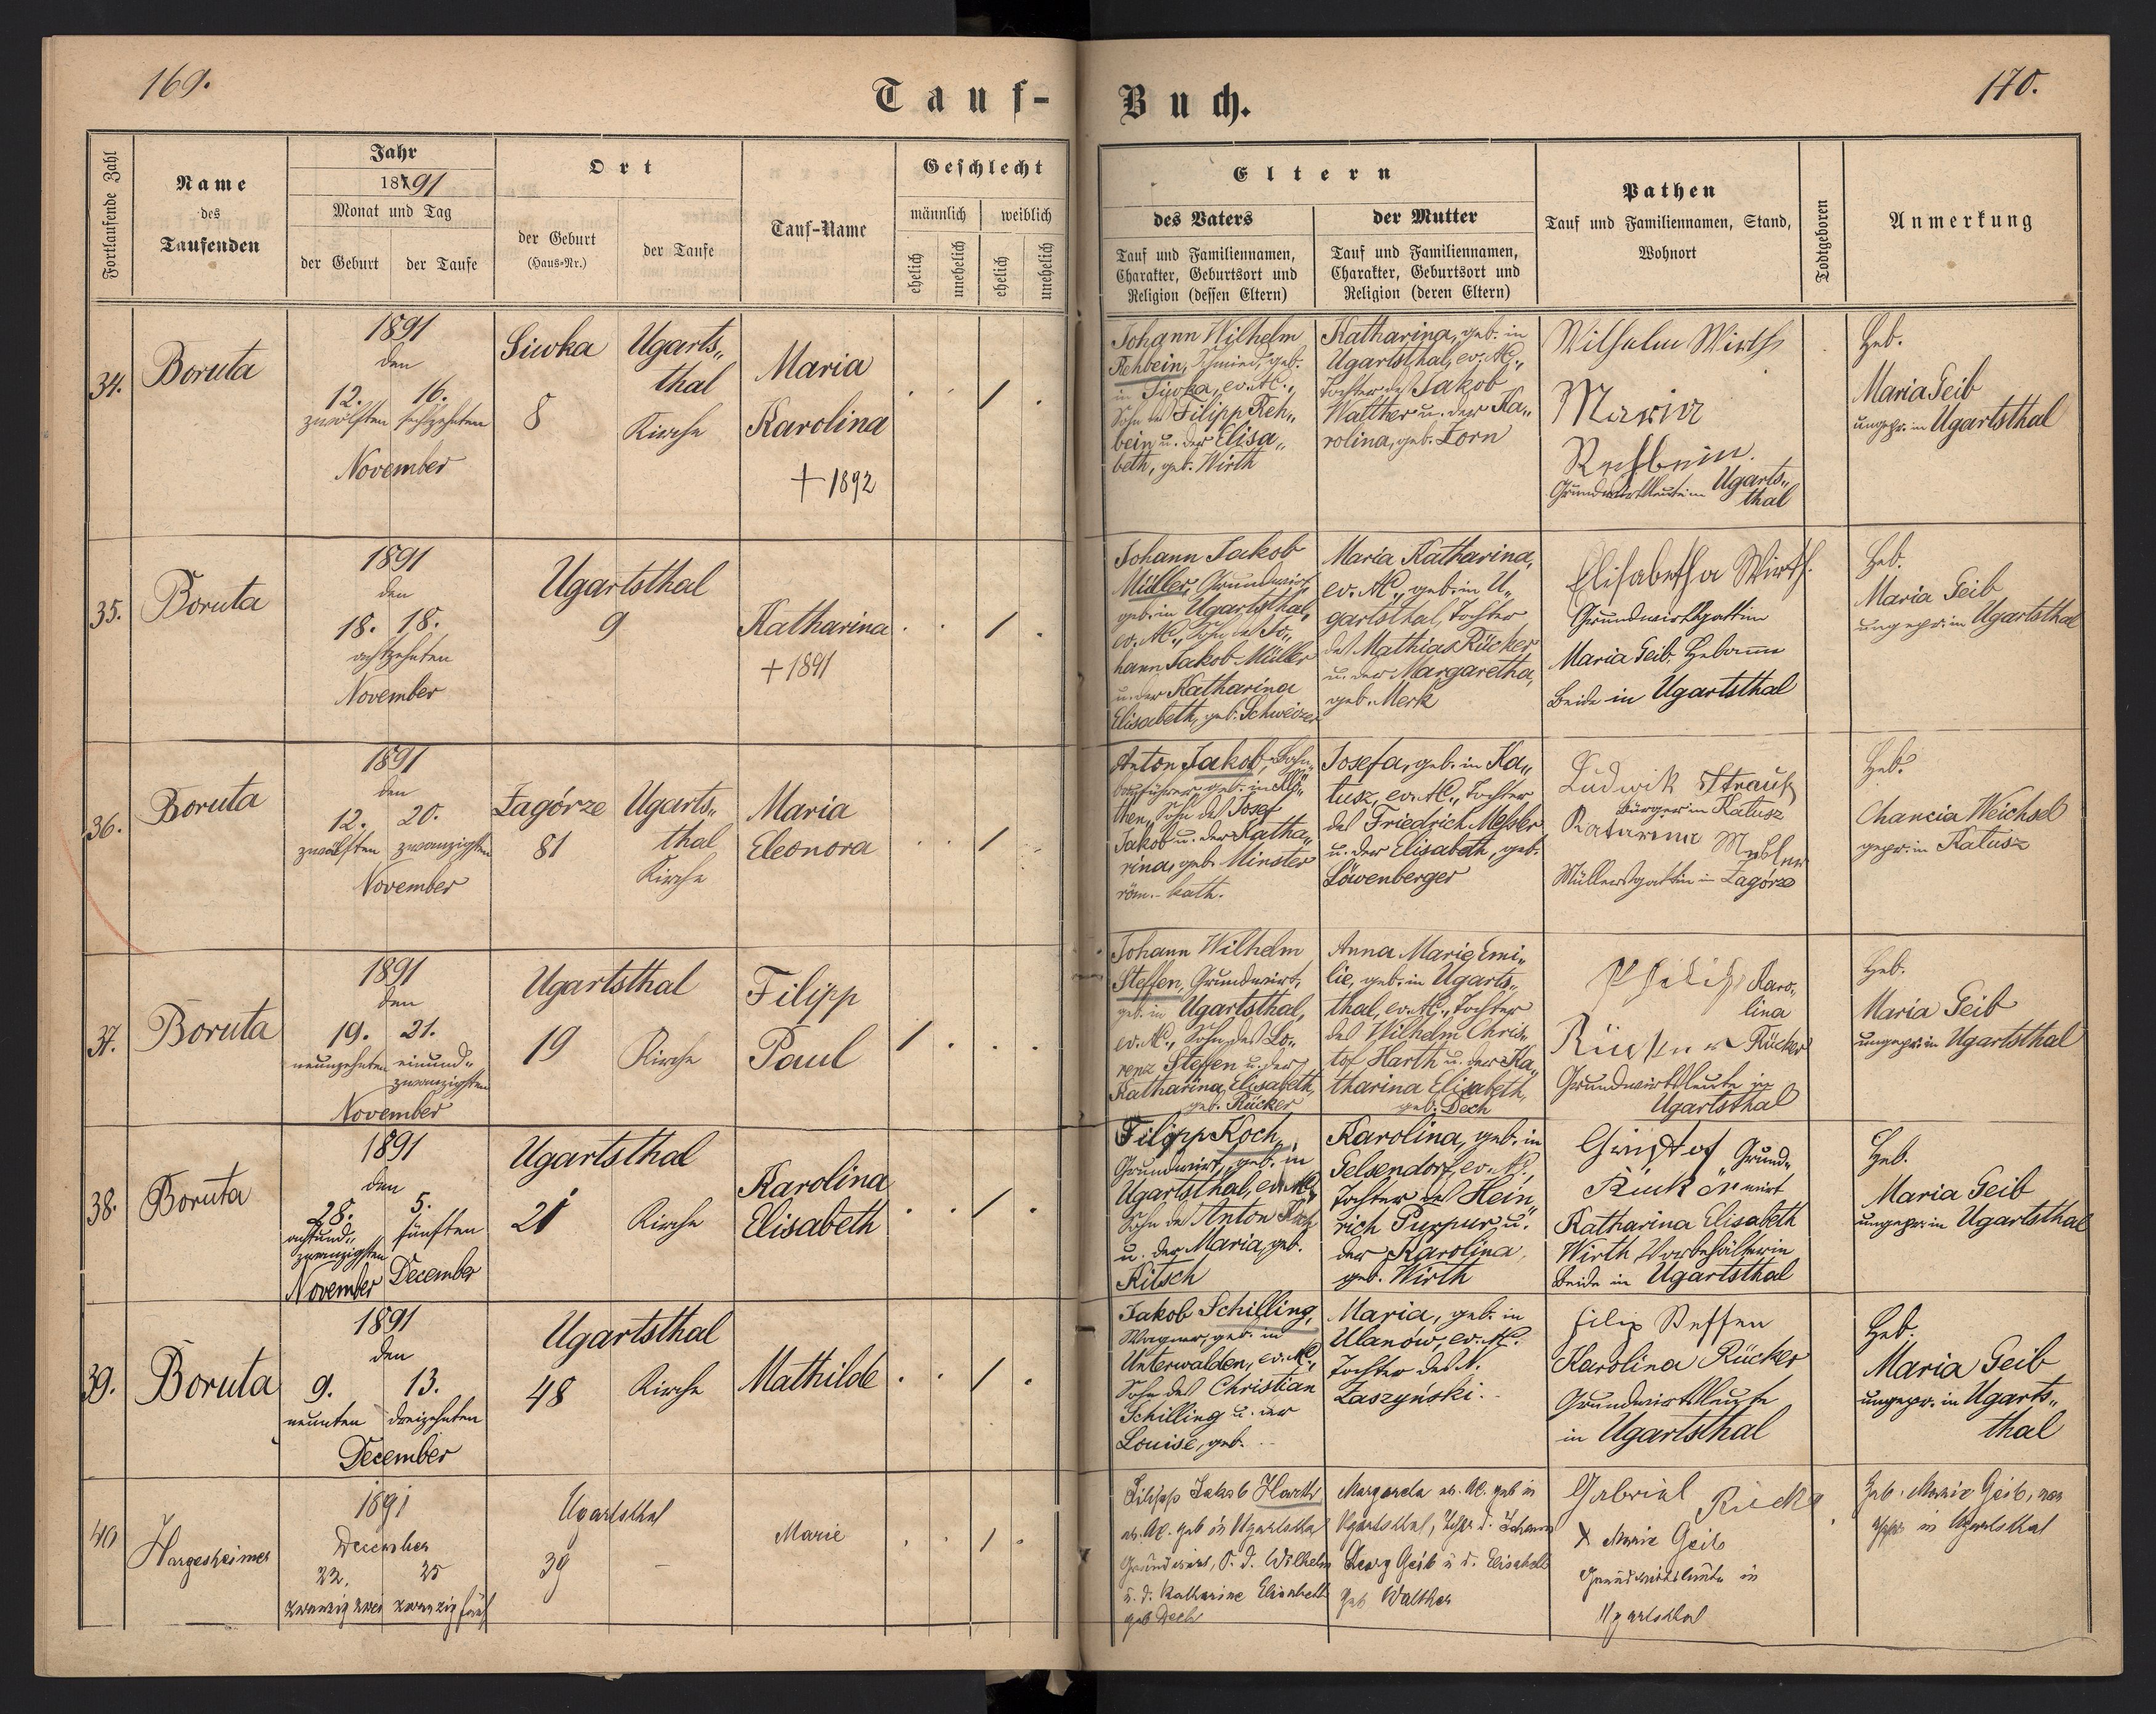 169.
Tauf-
Fortlaufende Zahl
Name
des
Taufenden
Jahr
1891
Monat und Tag
der Geburt
der Taufe
Ort
der Geburt
(Haus-Nr.)
der Taufe
Tauf-Name
Geschlecht
männlich
weiblich
ehelich
unehelich
ehelich
unehelich
34.
Boruta
1891
den
12. 16.
zwölften sechzehnten
November
Siwka
8
Ugarts„
thal
Kirche
Maria
Karolina
+ 1892
35.
Boruta
1891
den
18. 18.
achtzehnten
November
Ugartsthal
9
Katharina
+ 1891
36.
Boruta
1891
den
12. 20.
zwölften zwanzigsten
November
Zagórze
81
Ugarts„
thal
Kirche
Maria
Eleonora
37.
Boruta
1891
den
19. 21.
neunzehnten einund„
zwanzigsten
November
Ugartsthal
19 Kirche
Filipp
Paul
38.
Boruta
1891
den
28. 5.
achtund„ fünften
zwanzigsten
November December
Ugartsthal
21 Kirche
Karolina
Elisabeth
39.
Boruta
1891
den
9. 13.
neunten dreizehnten
December
Ugartsthal
48 Kirche
Mathilde
40
Hargesheimer
1891
December
22. 25
zwanzig zwei zwanzig fünf
Ugartsthal
39 –
Marie
170.
Buch.
Eltern
des Vaters
Tauf und Familiennamen,
Charakter, Geburtsort und
Religion (dessen Eltern)
der Mutter
Tauf und Familiennamen,
Charakter, Geburtsort und
Religion (deren Eltern)
Pathen
Tauf und Familiennamen, Stand,
Wohnort
Todtgeboren
Anmerkung
Johann Wilhelm
Rehbein, Schmied, geb.
in Siwka, ev. AC.,
Sohn des Filipp Reh„
bein u. der Elisa„
beth, geb. Wirth
Katharina, geb. in
Ugartsthal, ev. AC.,
Tochter des Jakob
Walther u. der Ka„
rolina, geb. Zorn
Wilhelm Wirth
Maria
Rehbein.
Grundwirtsleute in Ugarts„
thal
Heb.
Maria Geib
ungepr. in Ugartsthal
Johann Jakob
Müller, Grundwirt,
geb. in Ugartsthal,
ev. AC., Sohn des Jo„
hann Jakob Müller
u. der Katharina
Elisabeth, geb. Schweizer
Maria Katharina,
ev. AC., geb. in U„
gartsthal, Tochter
des Mathias Rücker
u. der Margaretha,
geb. Merk
Elisabetha Wirth.
Grundwirtsgattin
Maria Geib, Hebamme
Beide in Ugartsthal
Heb.
Maria Geib
ungepr. in Ugartsthal
Anton Jakob,
geb. in
then, Sohn des Josef
Jakob u. der Katha„
rina, geb. Minster
röm.-kath.
Josefa, geb. in Ka„
łusz, ev. AC., Tochter
des Friedrich Messler
u. der Elisabeth, geb.
Löwenberger
Ludwik Strauß
Bürger in Kałusz
Katarina Meßler
Müllersgattin in Zagórze
Heb.
Chancia Weichsel
gepr. in Kałusz
Johann Wilhelm
Steffen, Grundwirt,
geb. in Ugartsthal,
ev. AC., Sohn des Lo„
renz Steffen u. der
Katharina Elisabeth,
geb. Rücker
Anna Marie Emi„
lie, geb. in Ugarts„
thal, ev. AC., Tochter
des Wilhelm Chris„
tof Harth u. der Ka„
tharina Elisabeth,
geb. Dech
Philip Karo„
lina
Rücker Rücker
Grundwirtsleute in
Ugartsthal
Heb.
Maria Geib
ungepr. in Ugartsthal
Filipp Koch,
Grundwirt, geb. in
Ugartsthal, ev. AC.,
Sohn des Anton Koch
u. der Maria, geb.
Ritsch
Karolina, geb. in
Gelsendorf, ev. AC.,
Tochter des Hein„
rich Purpur, u.
der Karolina,
geb. Wirth
Christof Grund„
Rücker wirt
Katharina Elisabeth
Wirth, Vorbehälterin
Beide in Ugartsthal
Heb.
Maria Geib
ungepr. in Ugartsthal
Jakob Schilling,
Wagner, geb. in
Unterwalden, ev. AC.,
Sohn des Christian
Schilling u. der
Louise, geb. ..
Maria, geb. in
Ulanow, ev. AC.
Tochter des A.
Zaszyński.
Filip Steffen
Karolina Rücker
Grundwirtsleute
in Ugartsthal
Heb.
Maria Geib
ungepr. in Ugarts„
thal
Filipp Jakob Harth
ev. AC. geb in Ugartsthal
Grundwirt, S. d. Wilhelm
u. d. Katharine Elisabeth
geb Dech
Margarete ev. AC. geb in
Ugartsthal, Tocht d. Johann
Georg Geib u d. Elisabeth
geb Walther
Gabriel Rücker
X Marie Geib
Grundwirtsleute in
Ugartsthal
Heb. Marie Geib,
in Ugartsthal